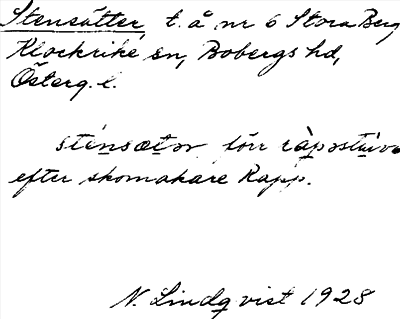 Stensätter, t. å. nr 6 Stora Berg
Klockrike sn, Bobergs hd,
Österg. l.
stensætor förr ràpostuiva
efter skomakare Rapp.
N. Lindqvist 1928